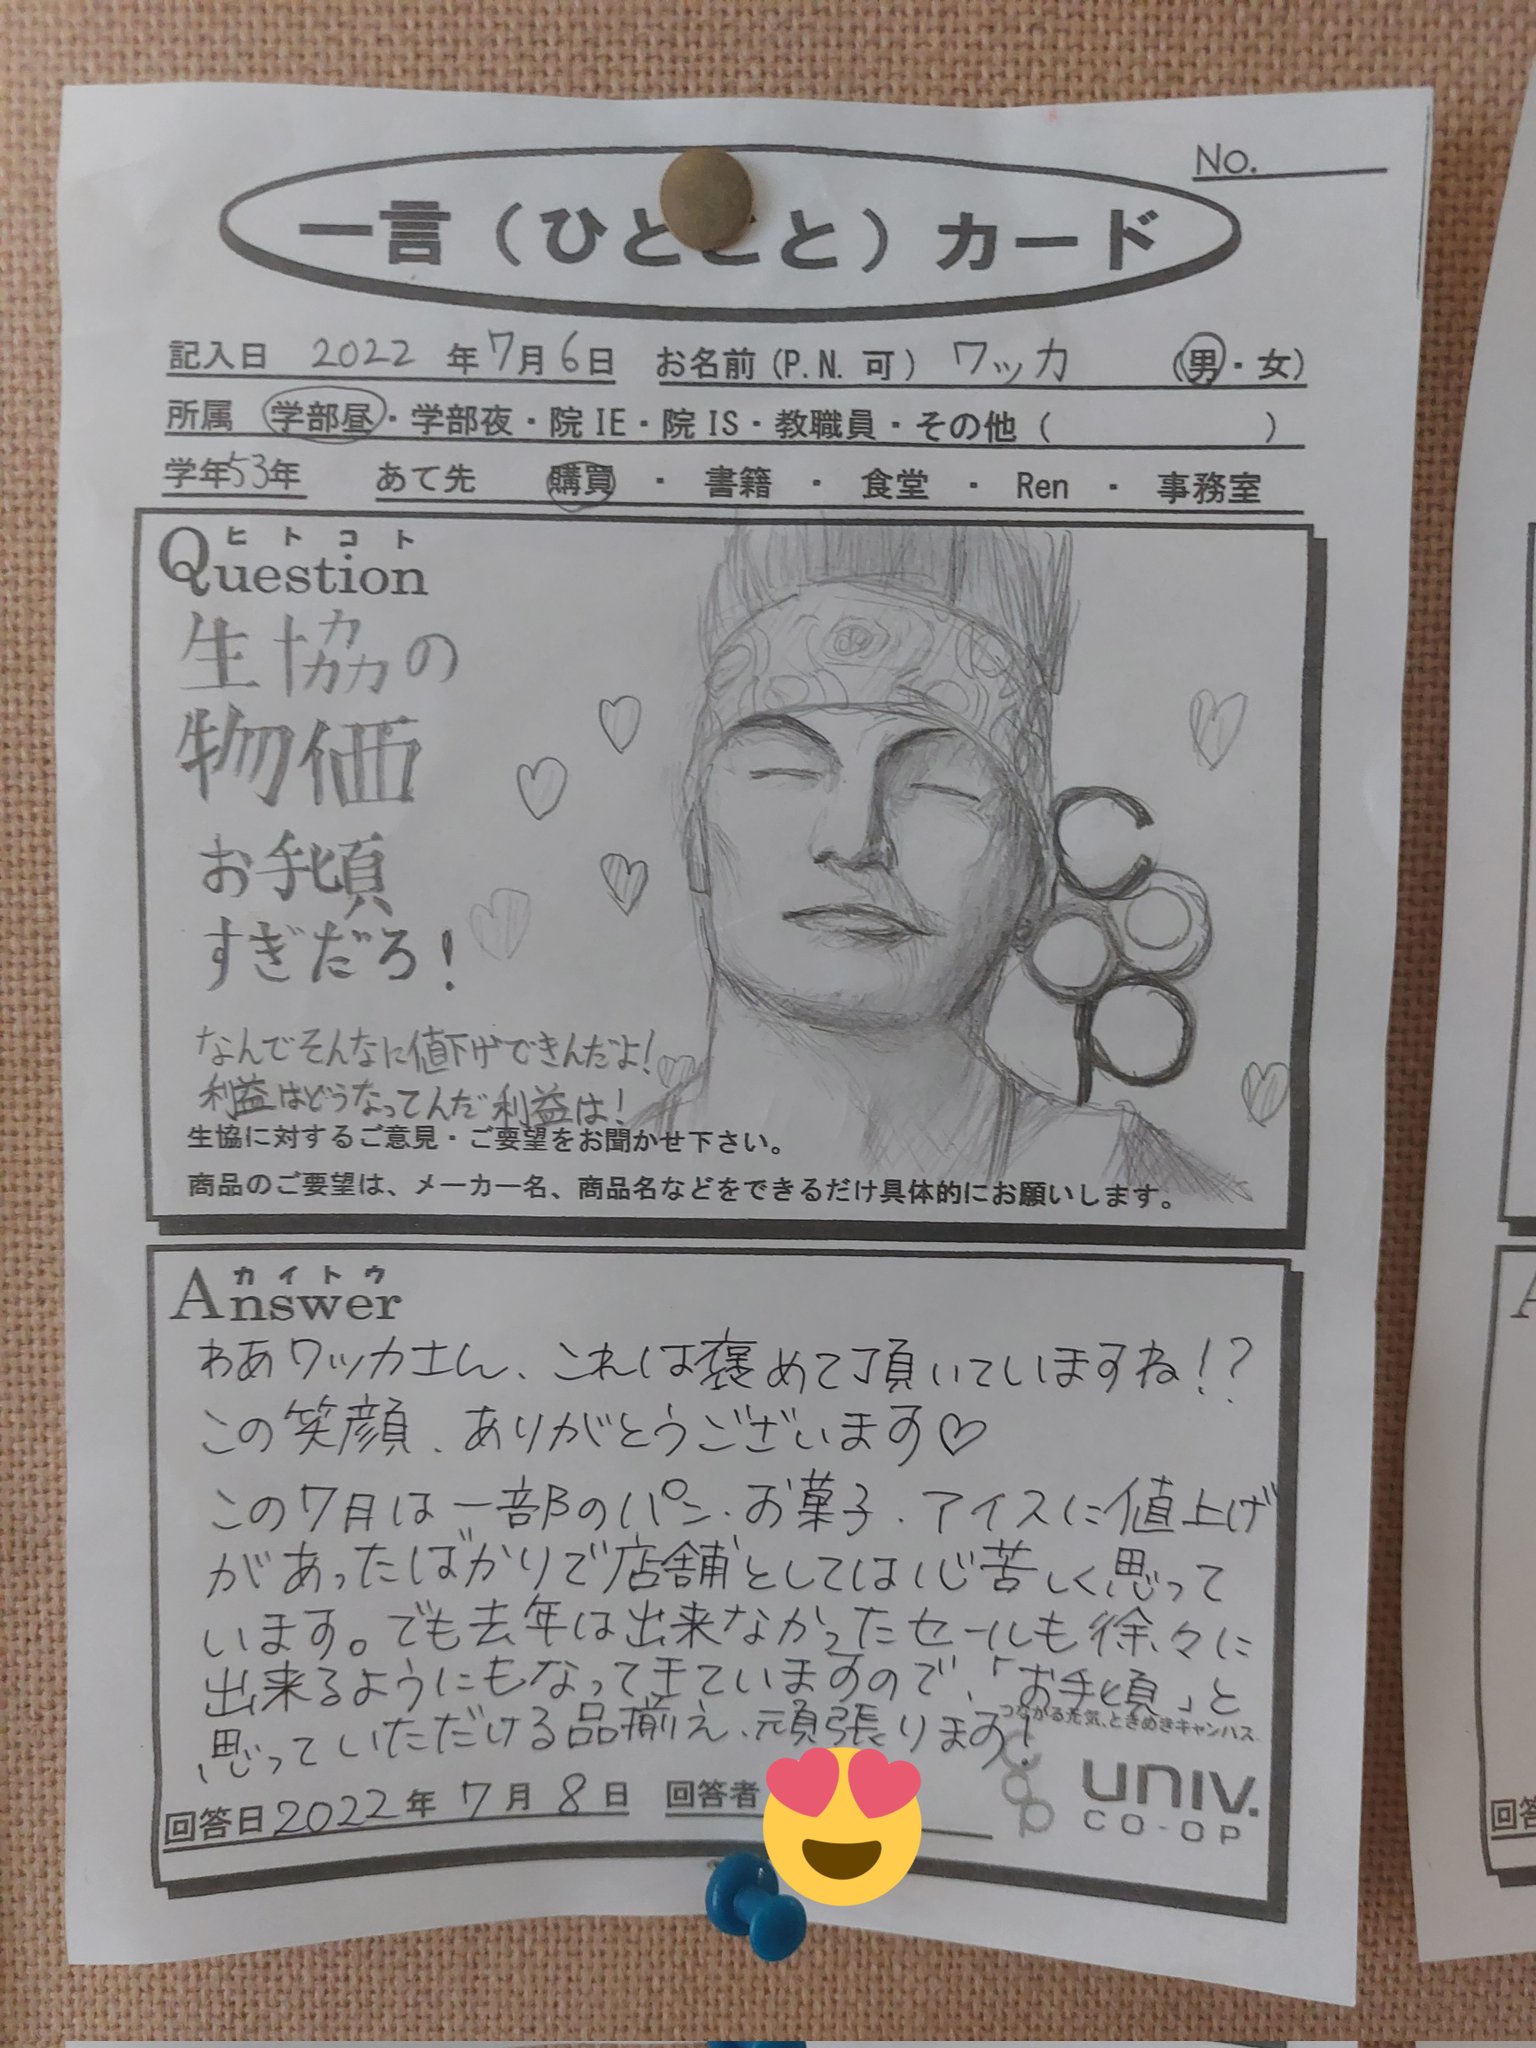 No.
一言（ひとこと）カード
記入日 2022 年 7月 6日 お名前(P.N.可) ワッカ (男・女)
所属 学部昼・学部夜・院IE・院IS・教職員・その他（ ）
学年53年 あて先 購買 ・ 書籍 ・ 食堂 ・ Ren ・ 事務室
ヒトコト
Question
生協の
物価
お手頃
すぎだろ!
なんでそんなに値下げできんだよ!
利益はどうなってんだ利益は!
生協に対するご意見・ご要望をお聞かせ下さい。
商品のご要望は、メーカー名、商品名などをできるだけ具体的にお願いします。
カイトウ
Answer
わあワッカさん、これは褒めて頂いていますね!?
この笑顔、ありがとうございます♡
この7月は一部のパン・お菓子・アイスに値上げ
があったばかりで店舗としては心苦しく思って
います。でも去年は出来なかったセールも徐々に
出来るようにもなってきていますので、「お手頃」と
思っていただける品揃え、頑張ります!
つながる元気、ときめきキャンパス
coop UNIV.
CO-OP
回答日 2022年 7月 8日 回答者